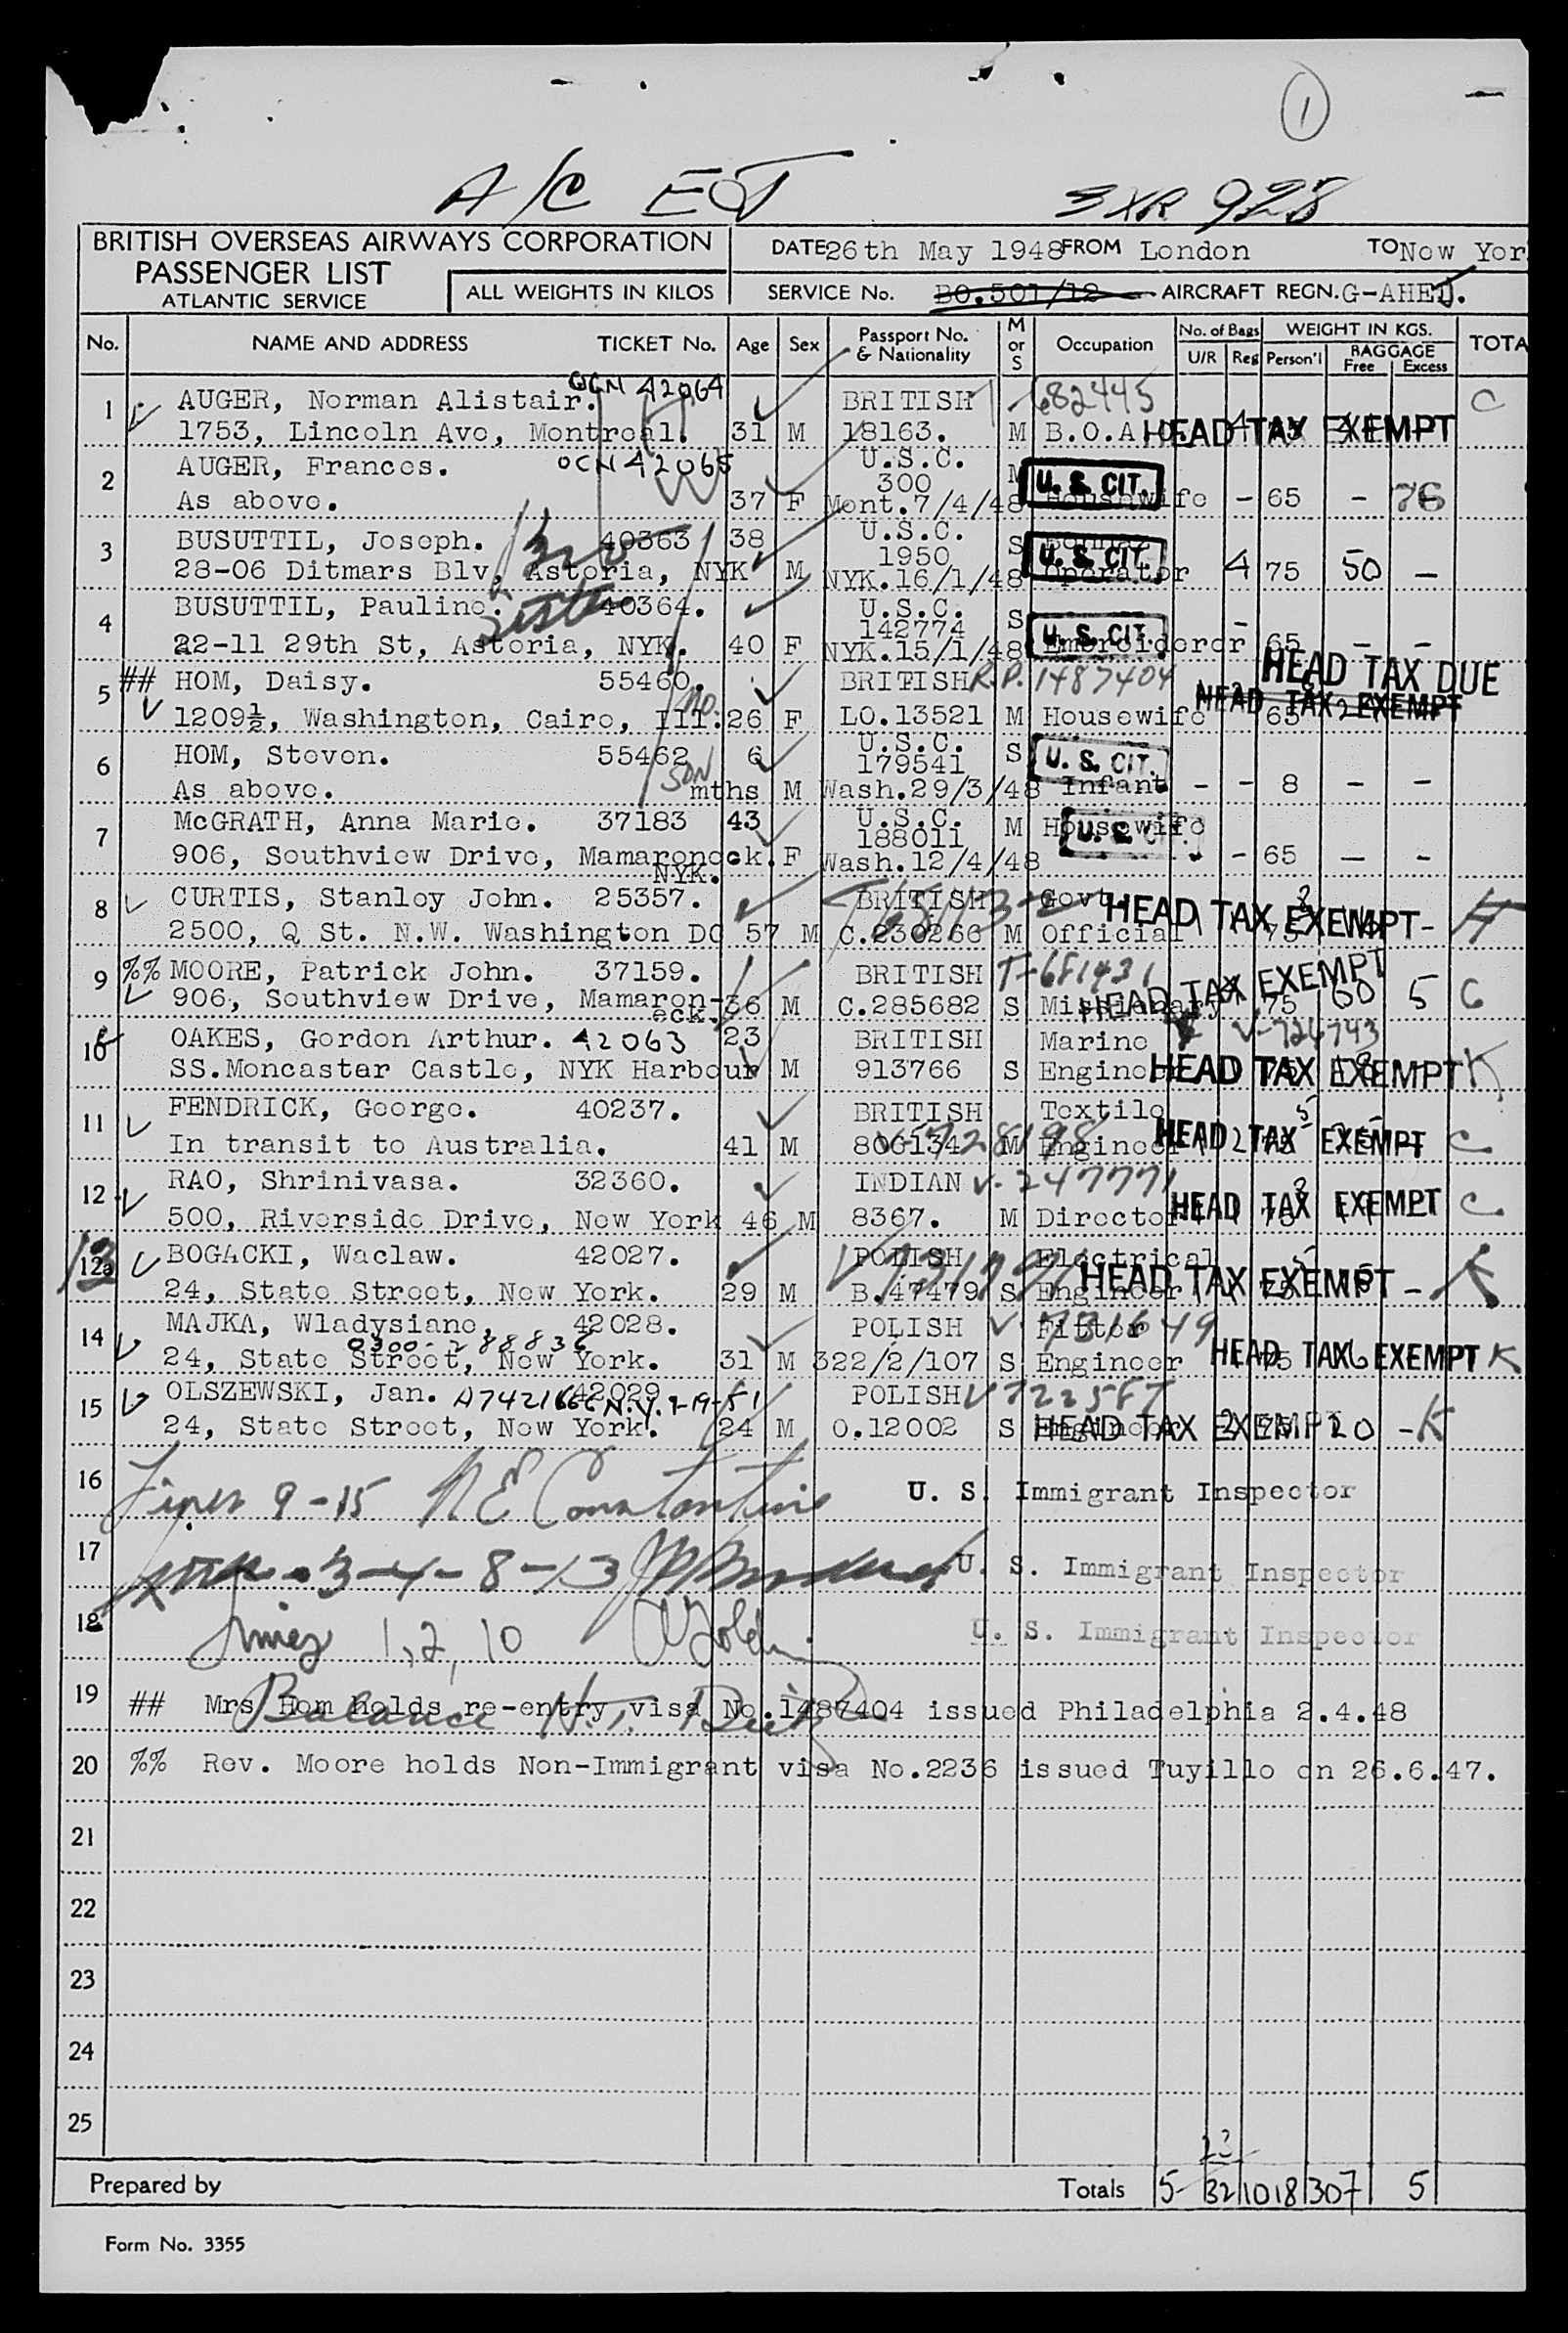 1
A/C EJ
SXR 928
BRITISH OVERSEAS AIRWAYS CORPORATION
PASSENGER LIST
ATLANTIC SERVICE
ALL WEIGHTS IN KILOS
DATE 26th May 1948 FROM London TO New Yor
SERVICE No. BO.501/12 AIRCRAFT REGN. G-AHEJ.
No. NAME AND ADDRESS TICKET No. Age Sex Passport No. & Nationality M or S Occupation No. of Bags U/R Reg WEIGHT IN KGS. Person'l BAGGAGE Free Excess TOTA
1 AUGER, Norman Alistair. OCN 42064 BRITISH 682445 C
1753, Lincoln Ave, Montreal. 31 M 18163. M B.O.A. HEAD TAX EXEMPT
2 AUGER, Frances. OCN 42065 U.S.C. 300 M U. S. CIT.
As above. 37 F Mont.7/4/48 Housewife - 65 - 76
3 BUSUTTIL, Joseph. 40363 38 U.S.C. 1950 S U. S. CIT.
28-06 Ditmars Blv, Astoria, NYK M NYK.16/1/48 Operator 4 75 50 -
4 BUSUTTIL, Pauline. sister 40364. U.S.C. 142774 S U. S. CIT.
22-11 29th St, Astoria, NYK. 40 F NYK.15/1/48 Embroiderer - 65 - -
5 ## HOM, Daisy. 55460. BRITISH R.P. 1487404 HEAD TAX DUE
1209½, Washington, Cairo, Ill. 26 F LO.13521 M Housewife 65 HEAD TAX EXEMPT
6 HOM, Steven. 55462 6 U.S.C. 179541 S U. S. CIT.
As above. son mths M Wash.29/3/48 Infant - - 8 - -
7 McGRATH, Anna Marie. 37183 43 U.S.C. 188011 M Housewife
906, Southview Drive, Mamaroneck. NYK. F Wash.12/4/48 U. S. CIT. - 65 - -
8 CURTIS, Stanley John. 25357. BRITISH Govt. HEAD TAX EXEMPT - H
2500, Q St. N.W. Washington DC 57 M C.230266 M Official 75
9 %% MOORE, Patrick John. 37159. BRITISH T-681431 HEAD TAX EXEMPT
906, Southview Drive, Mamaron-eck. 36 M C.285682 S Missionary 75 60 5 C
10 OAKES, Gordon Arthur. 42063 23 BRITISH Marine V-726743
SS.Moncaster Castle, NYK Harbour M 913766 S Engineer HEAD TAX EXEMPT K
11 FENDRICK, George. 40237. BRITISH Textile
In transit to Australia. 41 M 806134 M Engineer HEAD TAX EXEMPT C
12 RAO, Shrinivasa. 32360. INDIAN V-247771
500, Riverside Drive, New York 46 M 8367. M Director HEAD TAX EXEMPT C
12a 13 BOGACKI, Waclaw. 42027. POLISH Electrical
24, State Street, New York. 29 M B.47479 S Engineer HEAD TAX EXEMPT - K
14 MAJKA, Wladysiano, 42028. POLISH V-731649 Fitter
0300-288836
24, State Street, New York. 31 M 322/2/107 S Engineer HEAD TAX EXEMPT K
15 OLSZEWSKI, Jan. A7421666 N.Y. 9-19-51 42029 POLISH V722587
24, State Street, New York. 24 M 0.12002 S Engineer HEAD TAX EXEMPT 20 - K
16 Lines 9-15 N E Constantine U. S. Immigrant Inspector
17 3-4-8-13 U. S. Immigrant Inspector
18 Lines 1, 2, 10 U. S. Immigrant Inspector
19 ## Mrs Hom holds re-entry visa No.1487404 issued Philadelphia 2.4.48
Balance
20 %% Rev. Moore holds Non-Immigrant visa No.2236 issued Tuyillo on 26.6.47.
21
22
23
24
25
23
Prepared by Totals 5 32 1018 307 5
Form No. 3355